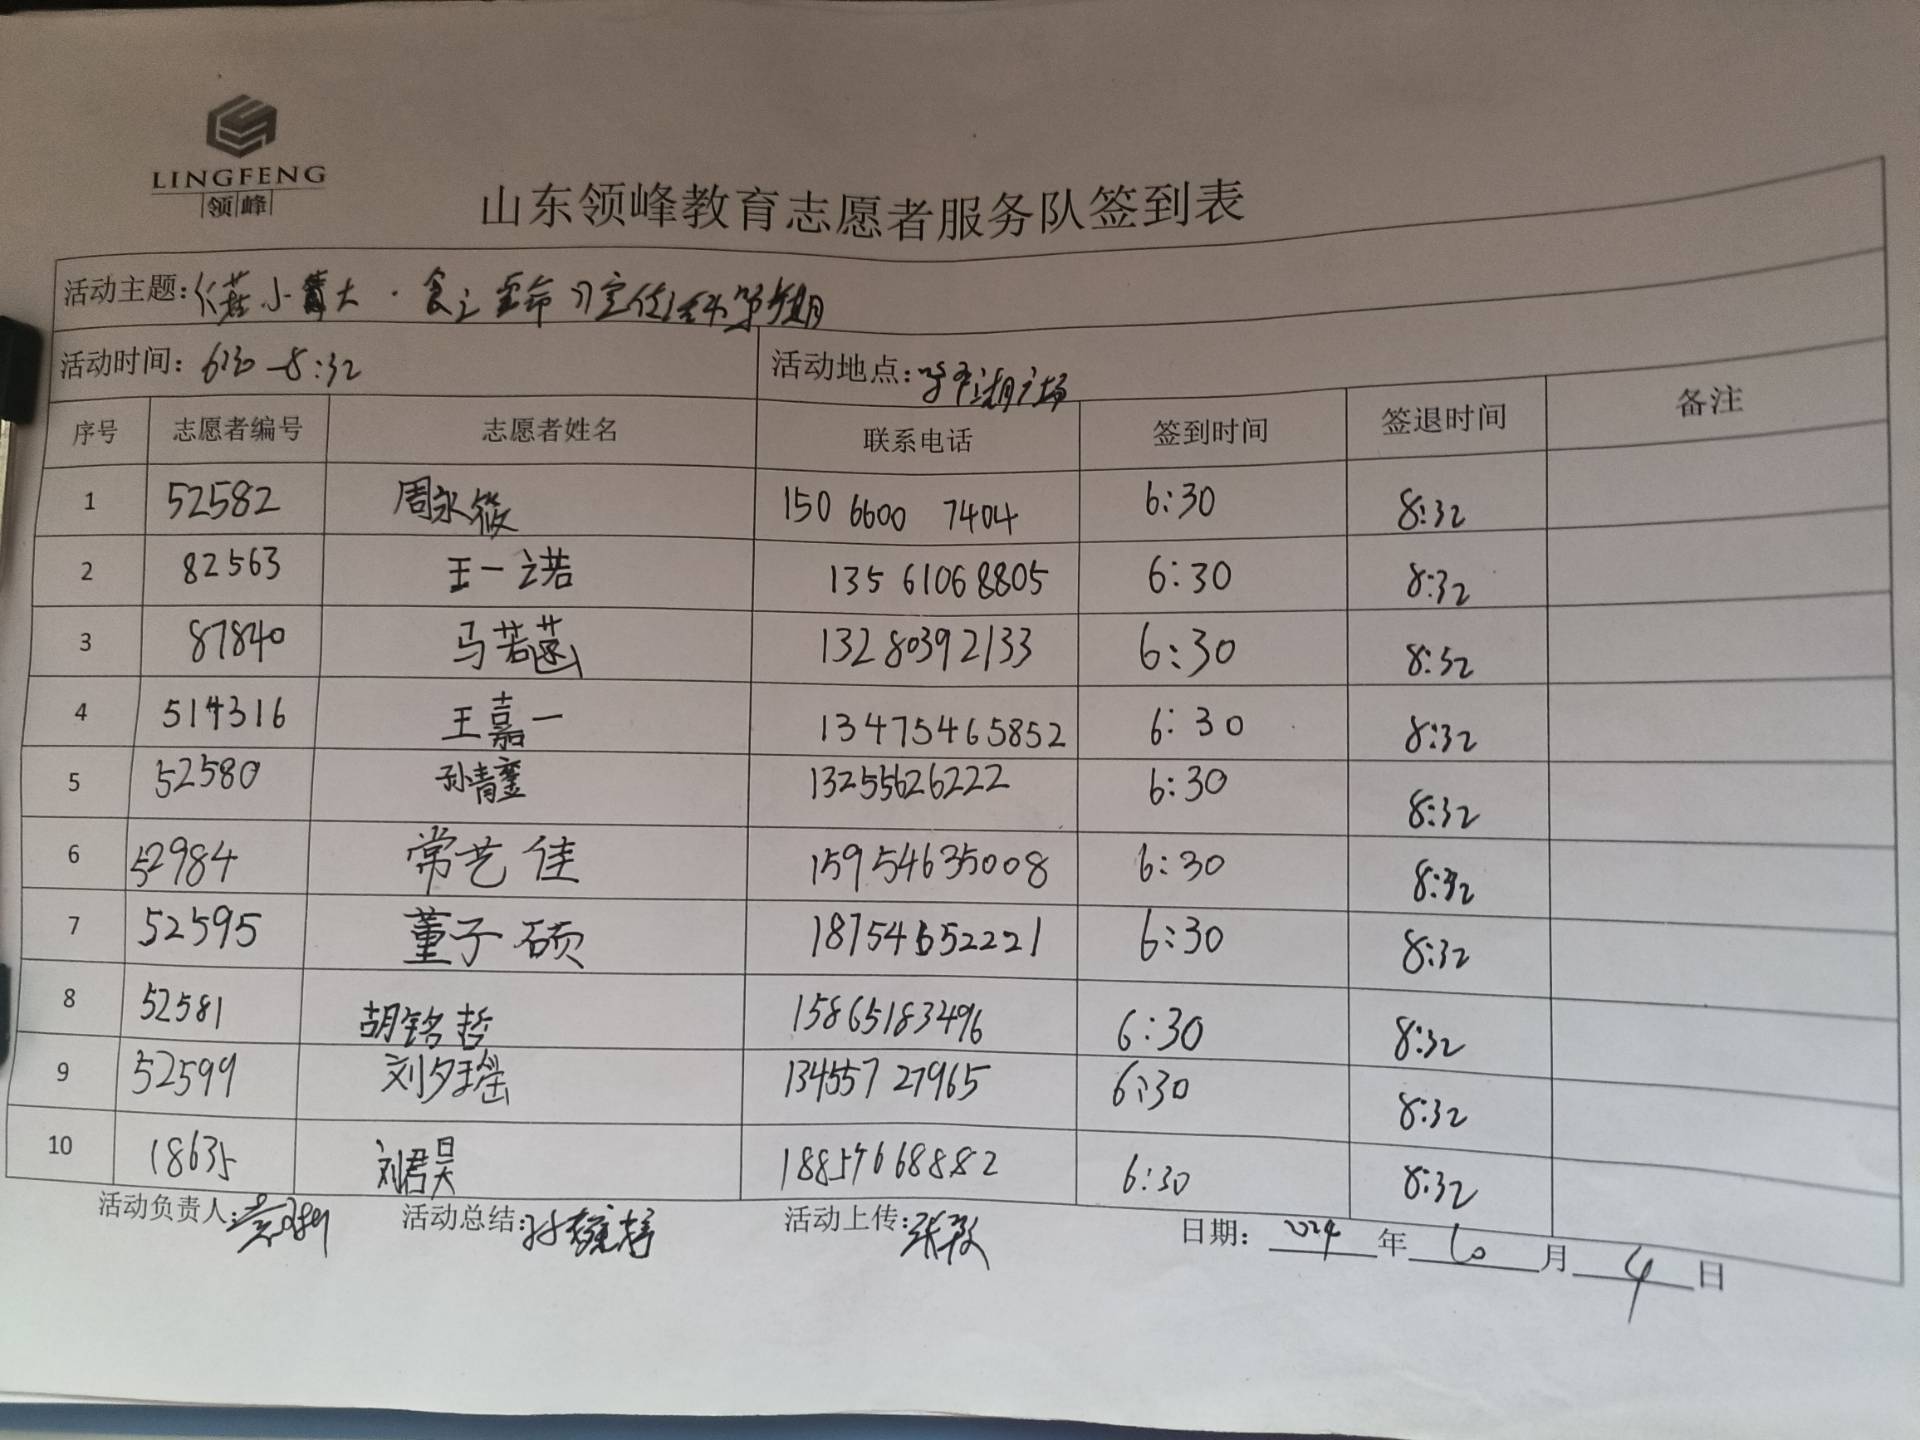 LINGFENG
领峰
山东领峰教育志愿者服务队签到表
活动主题:
活动时间: 6:30-8:32 活动地点: 广场
序号 志愿者编号 志愿者姓名 联系电话 签到时间 签退时间 备注
1 52582 周永筱 150 6600 7404 6:30 8:32
2 82563 王一诺 135 61068805 6:30 8:32
3 87840 马若菡 13280392133 6:30 8:32
4 514316 王嘉一 13475465852 6:30 8:32
5 52580 孙青銮 13255626222 6:30 8:32
6 52984 常艺佳 15954635008 6:30 8:32
7 52595 董子硕 18754652221 6:30 8:32
8 52581 胡铭哲 15865183496 6:30 8:32
9 52599 刘夕瑶 134557 27965 6:30 8:32
10 18635 刘君昊 18857668882 6:30 8:32
活动负责人: 活动总结: 活动上传: 张敏 日期: 2024 年 10 月 4 日